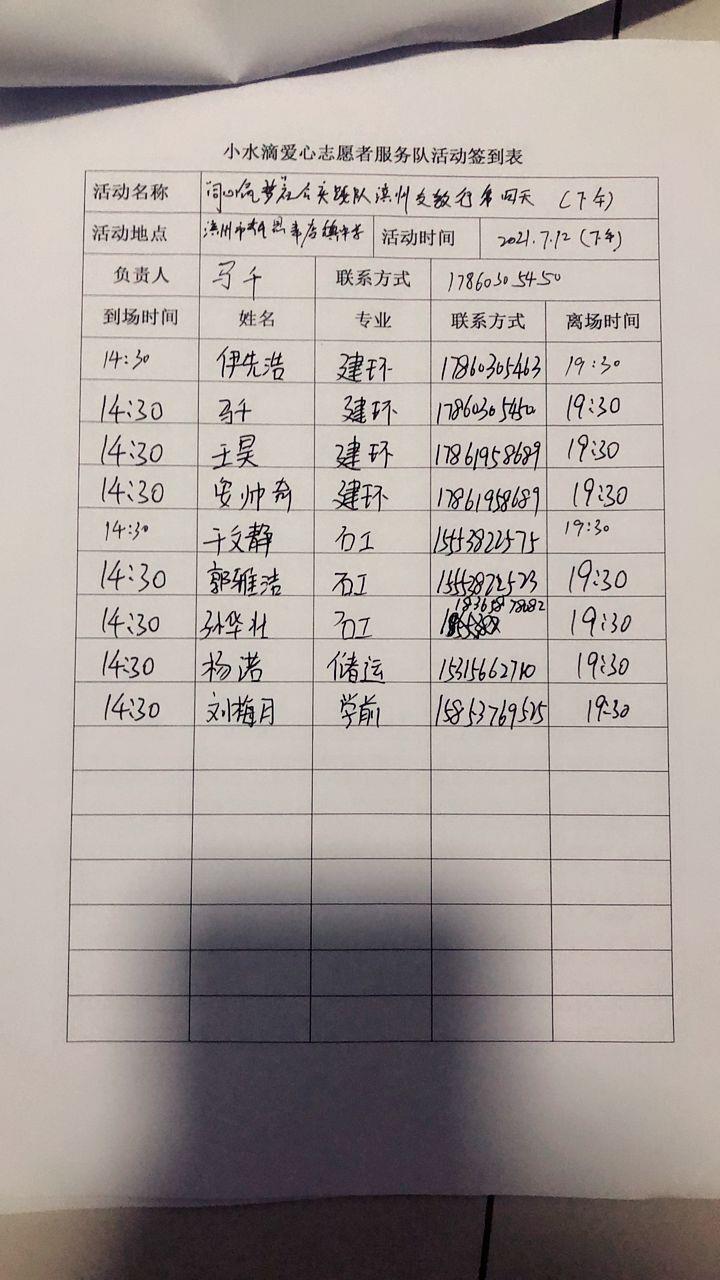 小水滴爱心志愿者服务队活动签到表
活动名称 同心筑梦社会实践队滨州支教行第四天 (下午)
活动地点 滨州市 店镇 活动时间 2021.7.12 (下午)
负责人 马千 联系方式 17860305450
到场时间 姓名 专业 联系方式 离场时间
14:30 伊先浩 建环 17860305463 19:30
14:30 马千 建环 17860305450 19:30
14:30 王昊 建环 17861958689 19:30
14:30 安帅奇 建环 17861958689 19:30
14:30 于文静 石工 15553822575 19:30
14:30 郭雅洁 石工 15553872523 19:30
14:30 孙华壮 石工 18365878682 19:30
14:30 杨诺 储运 15315662710 19:30
14:30 刘梅月 学前 15853769525 19:30